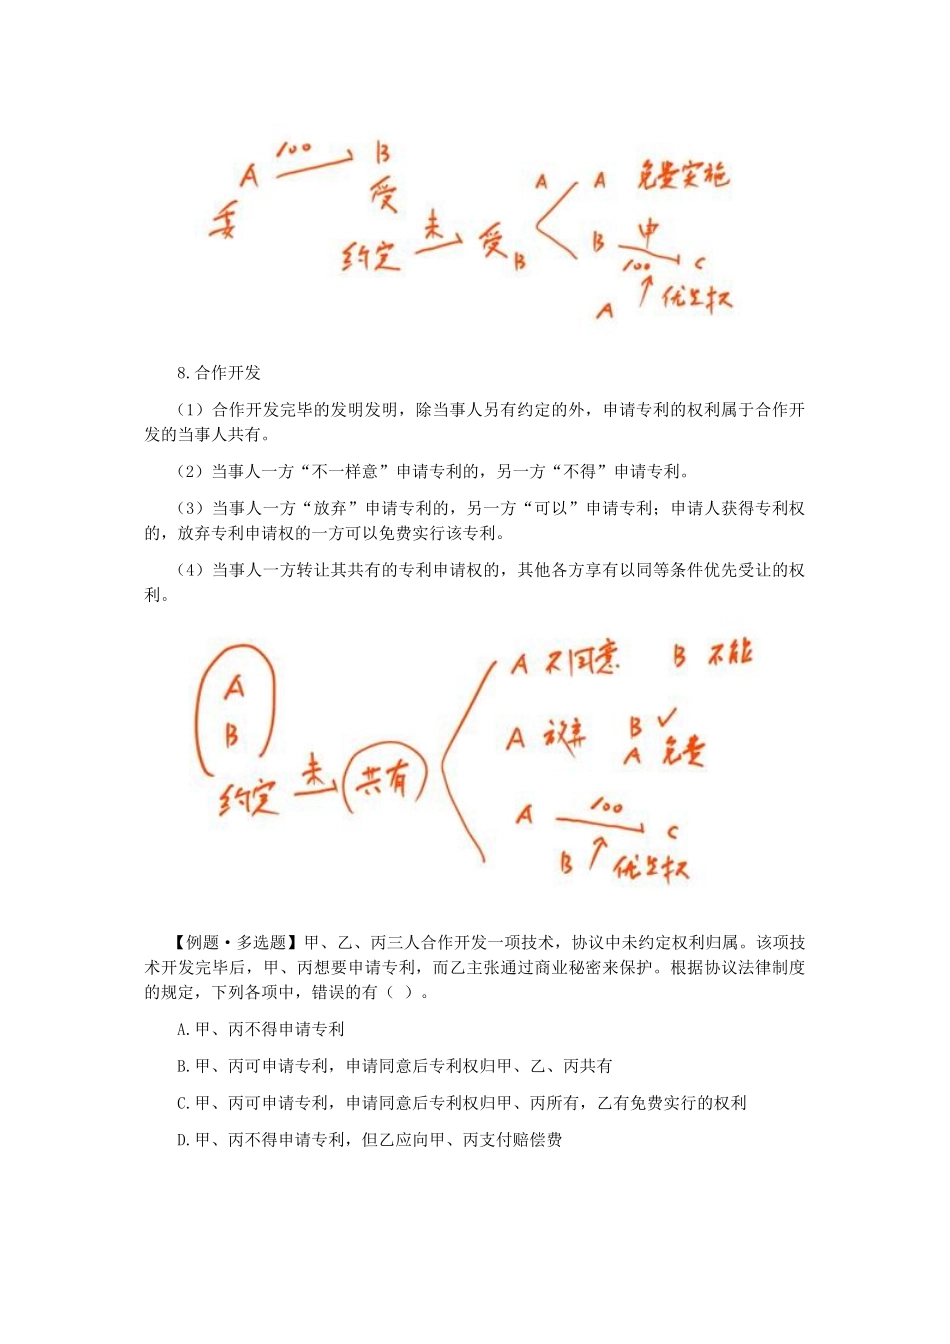 A 100 B
委 受
约定 未 受B
A A 免费实施
B 申 100 C
A 优先权
8.合作开发
（1）合作开发完毕的发明发明，除当事人另有约定的外，申请专利的权利属于合作开
发的当事人共有。
（2）当事人一方“不一样意”申请专利的，另一方“不得”申请专利。
（3）当事人一方“放弃”申请专利的，另一方“可以”申请专利；申请人获得专利权
的，放弃专利申请权的一方可以免费实行该专利。
（4）当事人一方转让其共有的专利申请权的，其他各方享有以同等条件优先受让的权
利。
A
B
约定 未 共有
A 不同意 B 不能
A 放弃 B
A 免费
A 100 C
B 优先权
【例题·多选题】甲、乙、丙三人合作开发一项技术，协议中未约定权利归属。该项技
术开发完毕后，甲、丙想要申请专利，而乙主张通过商业秘密来保护。根据协议法律制度
的规定，下列各项中，错误的有（ ）。
A.甲、丙不得申请专利
B.甲、丙可申请专利，申请同意后专利权归甲、乙、丙共有
C.甲、丙可申请专利，申请同意后专利权归甲、丙所有，乙有免费实行的权利
D.甲、丙不得申请专利，但乙应向甲、丙支付赔偿费